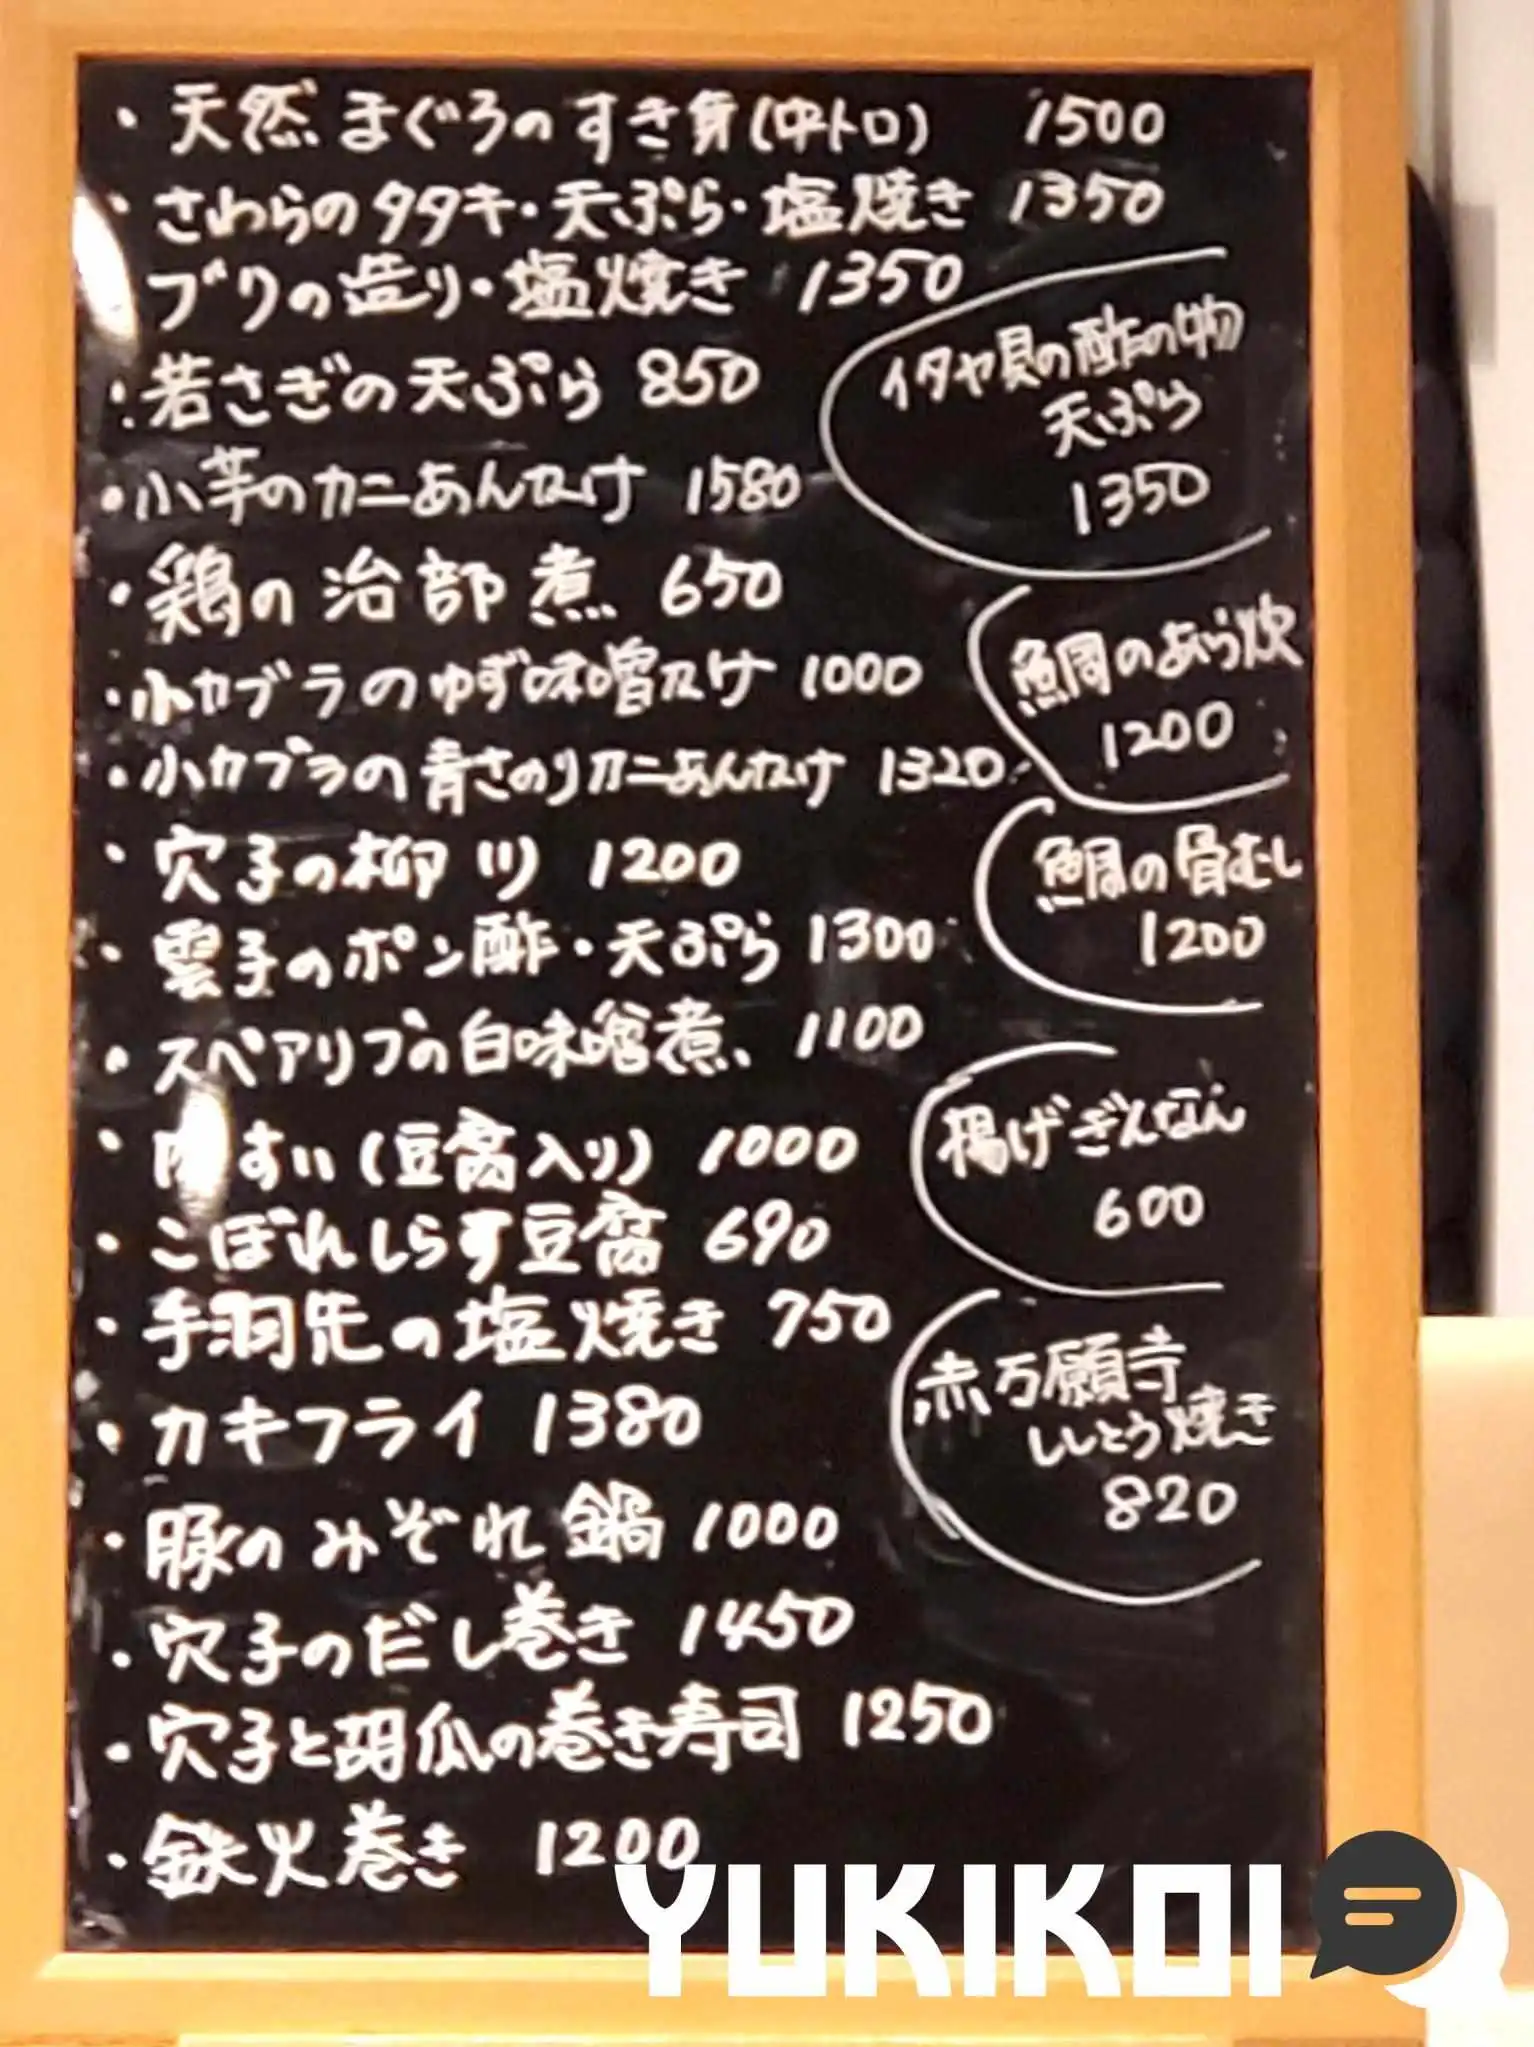 ・天然まぐろのすき身(中トロ) 1500
・さわらのタタキ・天ぷら・塩焼き 1350
・ブリの造り・塩焼き 1350
・若さぎの天ぷら 850
・小芋のカニあんかけ 1580
・鶏の治部煮 650
・小カブラのゆず味噌かけ 1000
・小カブラの青さのりカニあんかけ 1320
・穴子の柳川 1200
・雲子のポン酢・天ぷら 1300
・スペアリブの白味噌煮 1100
・肉すい(豆腐入り) 1000
・こぼれしらす豆腐 690
・手羽先の塩焼き 750
・カキフライ 1380
・豚のみぞれ鍋 1000
・穴子のだし巻き 1450
・穴子と胡瓜の巻き寿司 1250
・鉄火巻き 1200
イタヤ貝の酢の物
天ぷら
1350
鯛のあら炊
1200
鯛の骨むし
1200
揚げぎんなん
600
赤万願寺
ししとう焼き
820
YUKIKOI